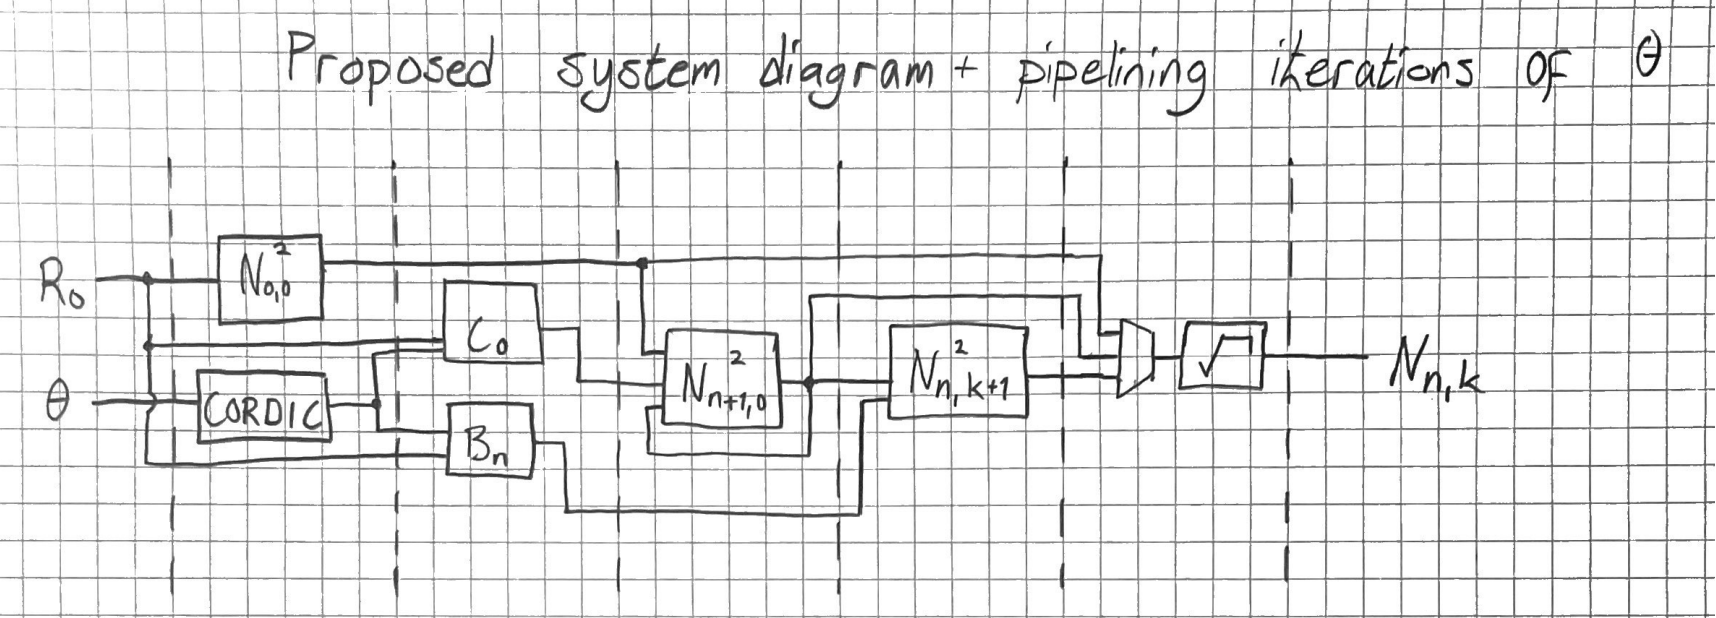 Proposed system diagram + pipelining iterations of θ
R₀
N₀,₀²
C₀
θ
CORDIC
Bₙ
Nₙ₊₁,₀²
Nₙ,ₖ₊₁²
√
Nₙ,ₖ